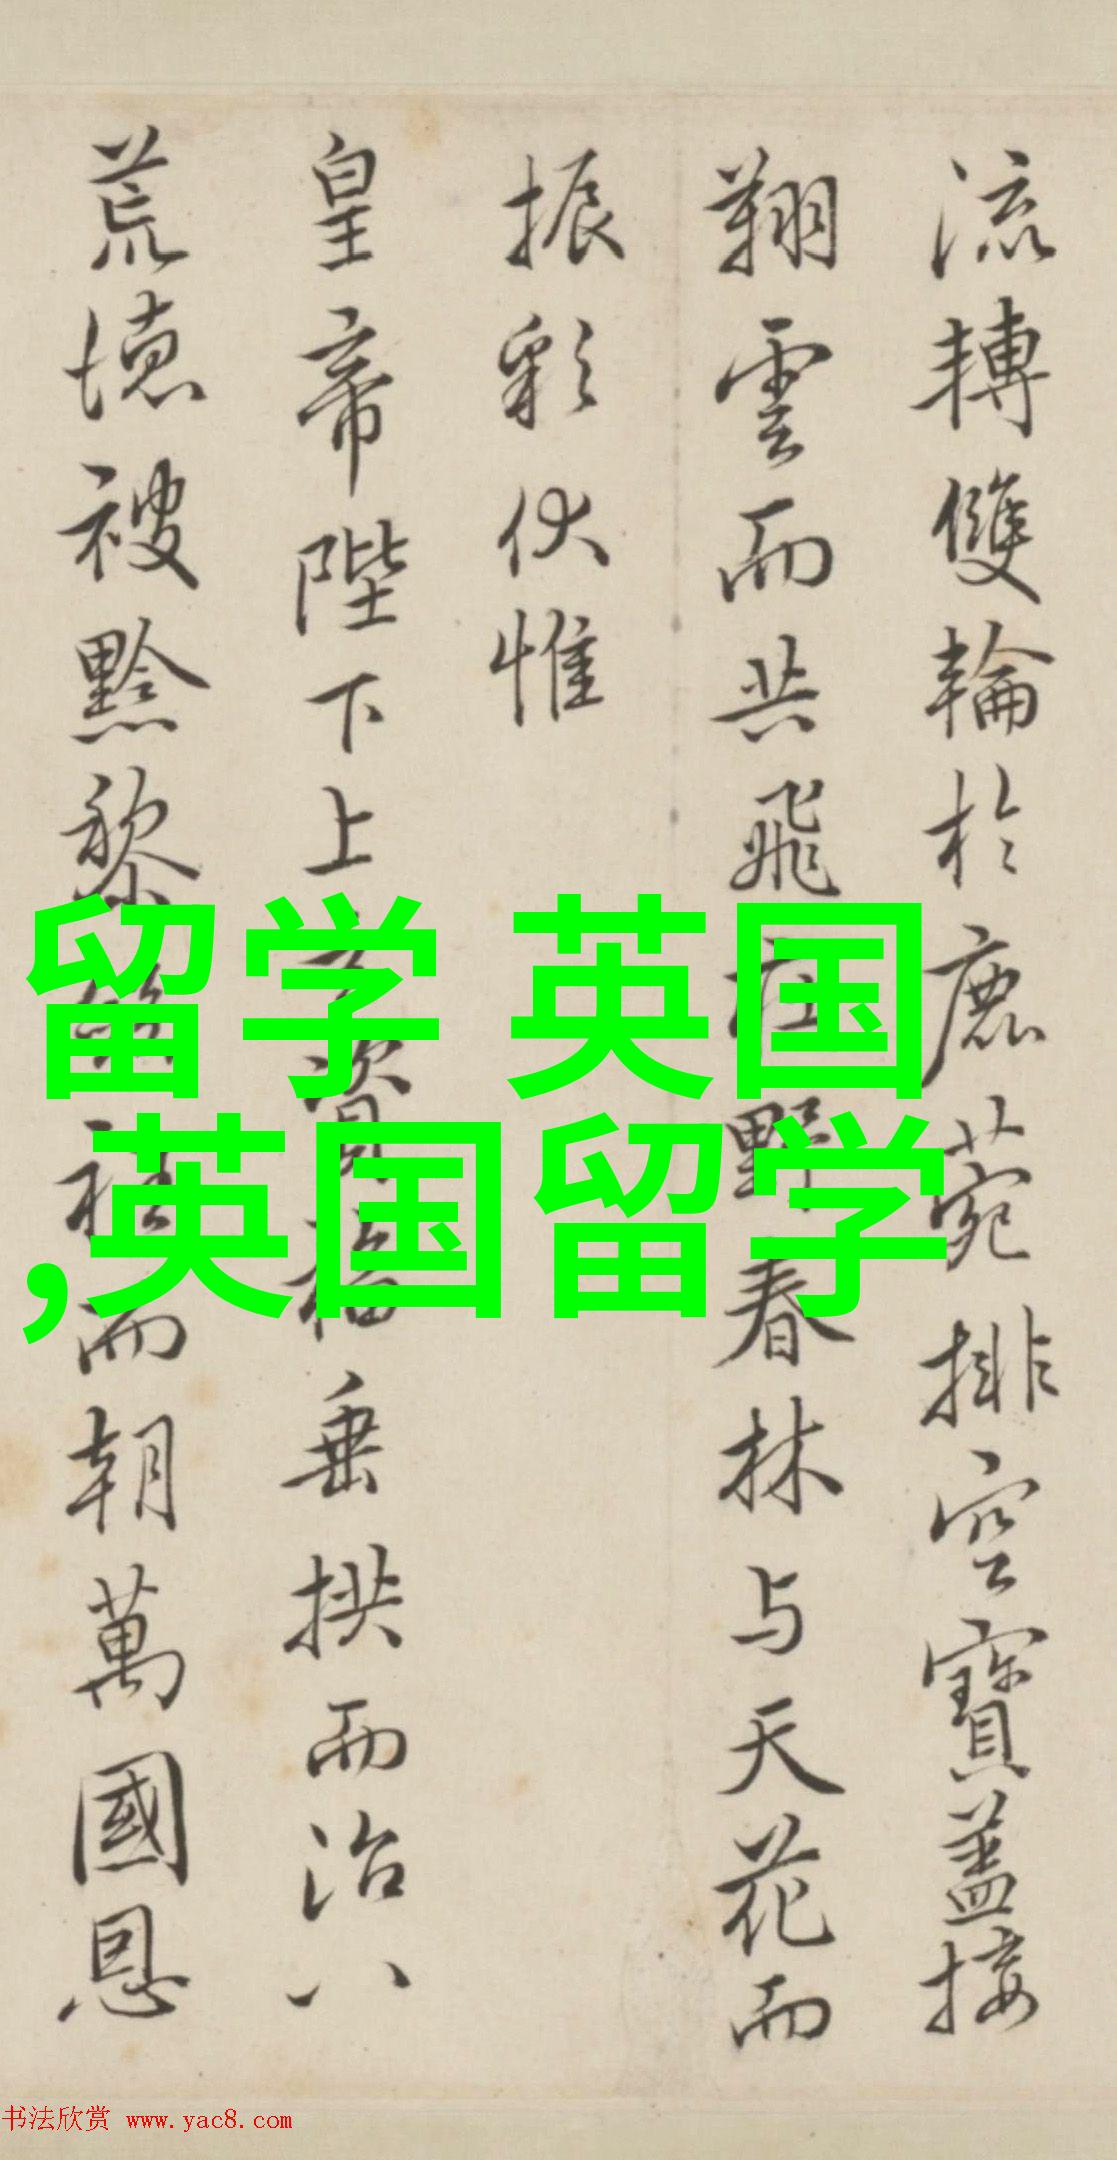 流轉雙輪於鹿菀排空寶蓋接
翔雲而共飛庄野春林与天花而
振彩伏惟
皇帝陛下上玄資福垂拱而治八
荒德被黔黎斂衽而朝萬國恩
留学 英国
,英国留学
书法欣赏 www.yac8.com